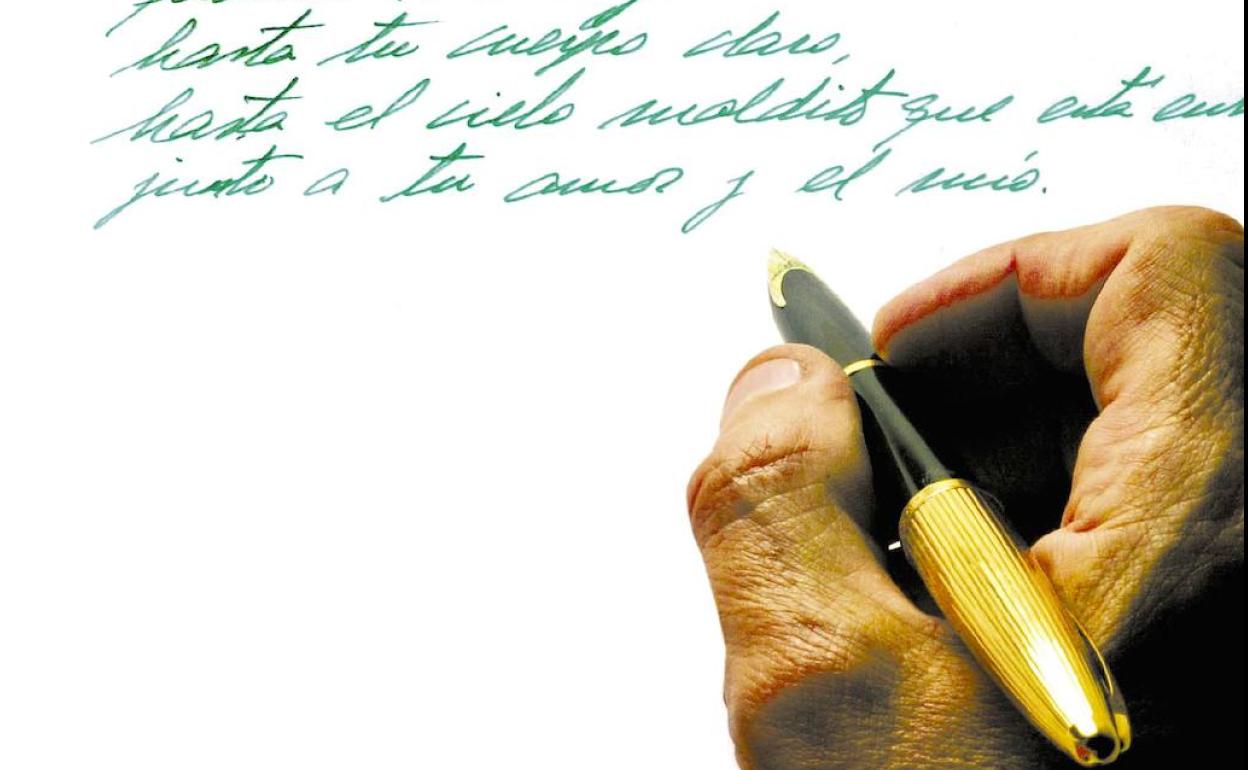 hasta tu cuerpo claro,
hasta el cielo maldito que está
junto a tu amor y el mío.